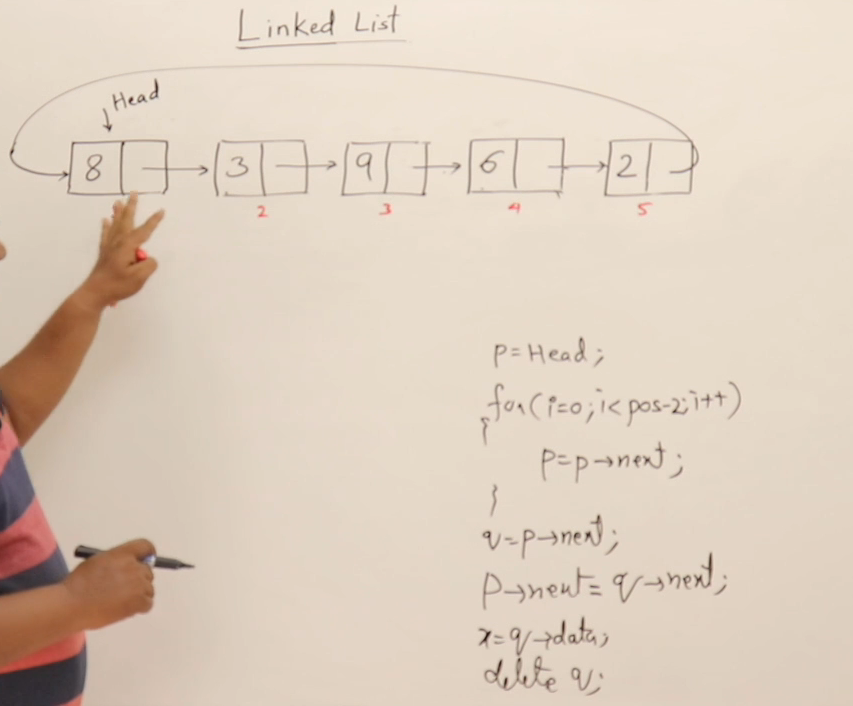 Linked List
Head
8 3 9 6 2
2 3 4 5
P=Head;
for(i=0;i<pos-2;i++)
{
P=p→next;
}
q=p→next;
P→next=q→next;
x=q→data;
delete q;